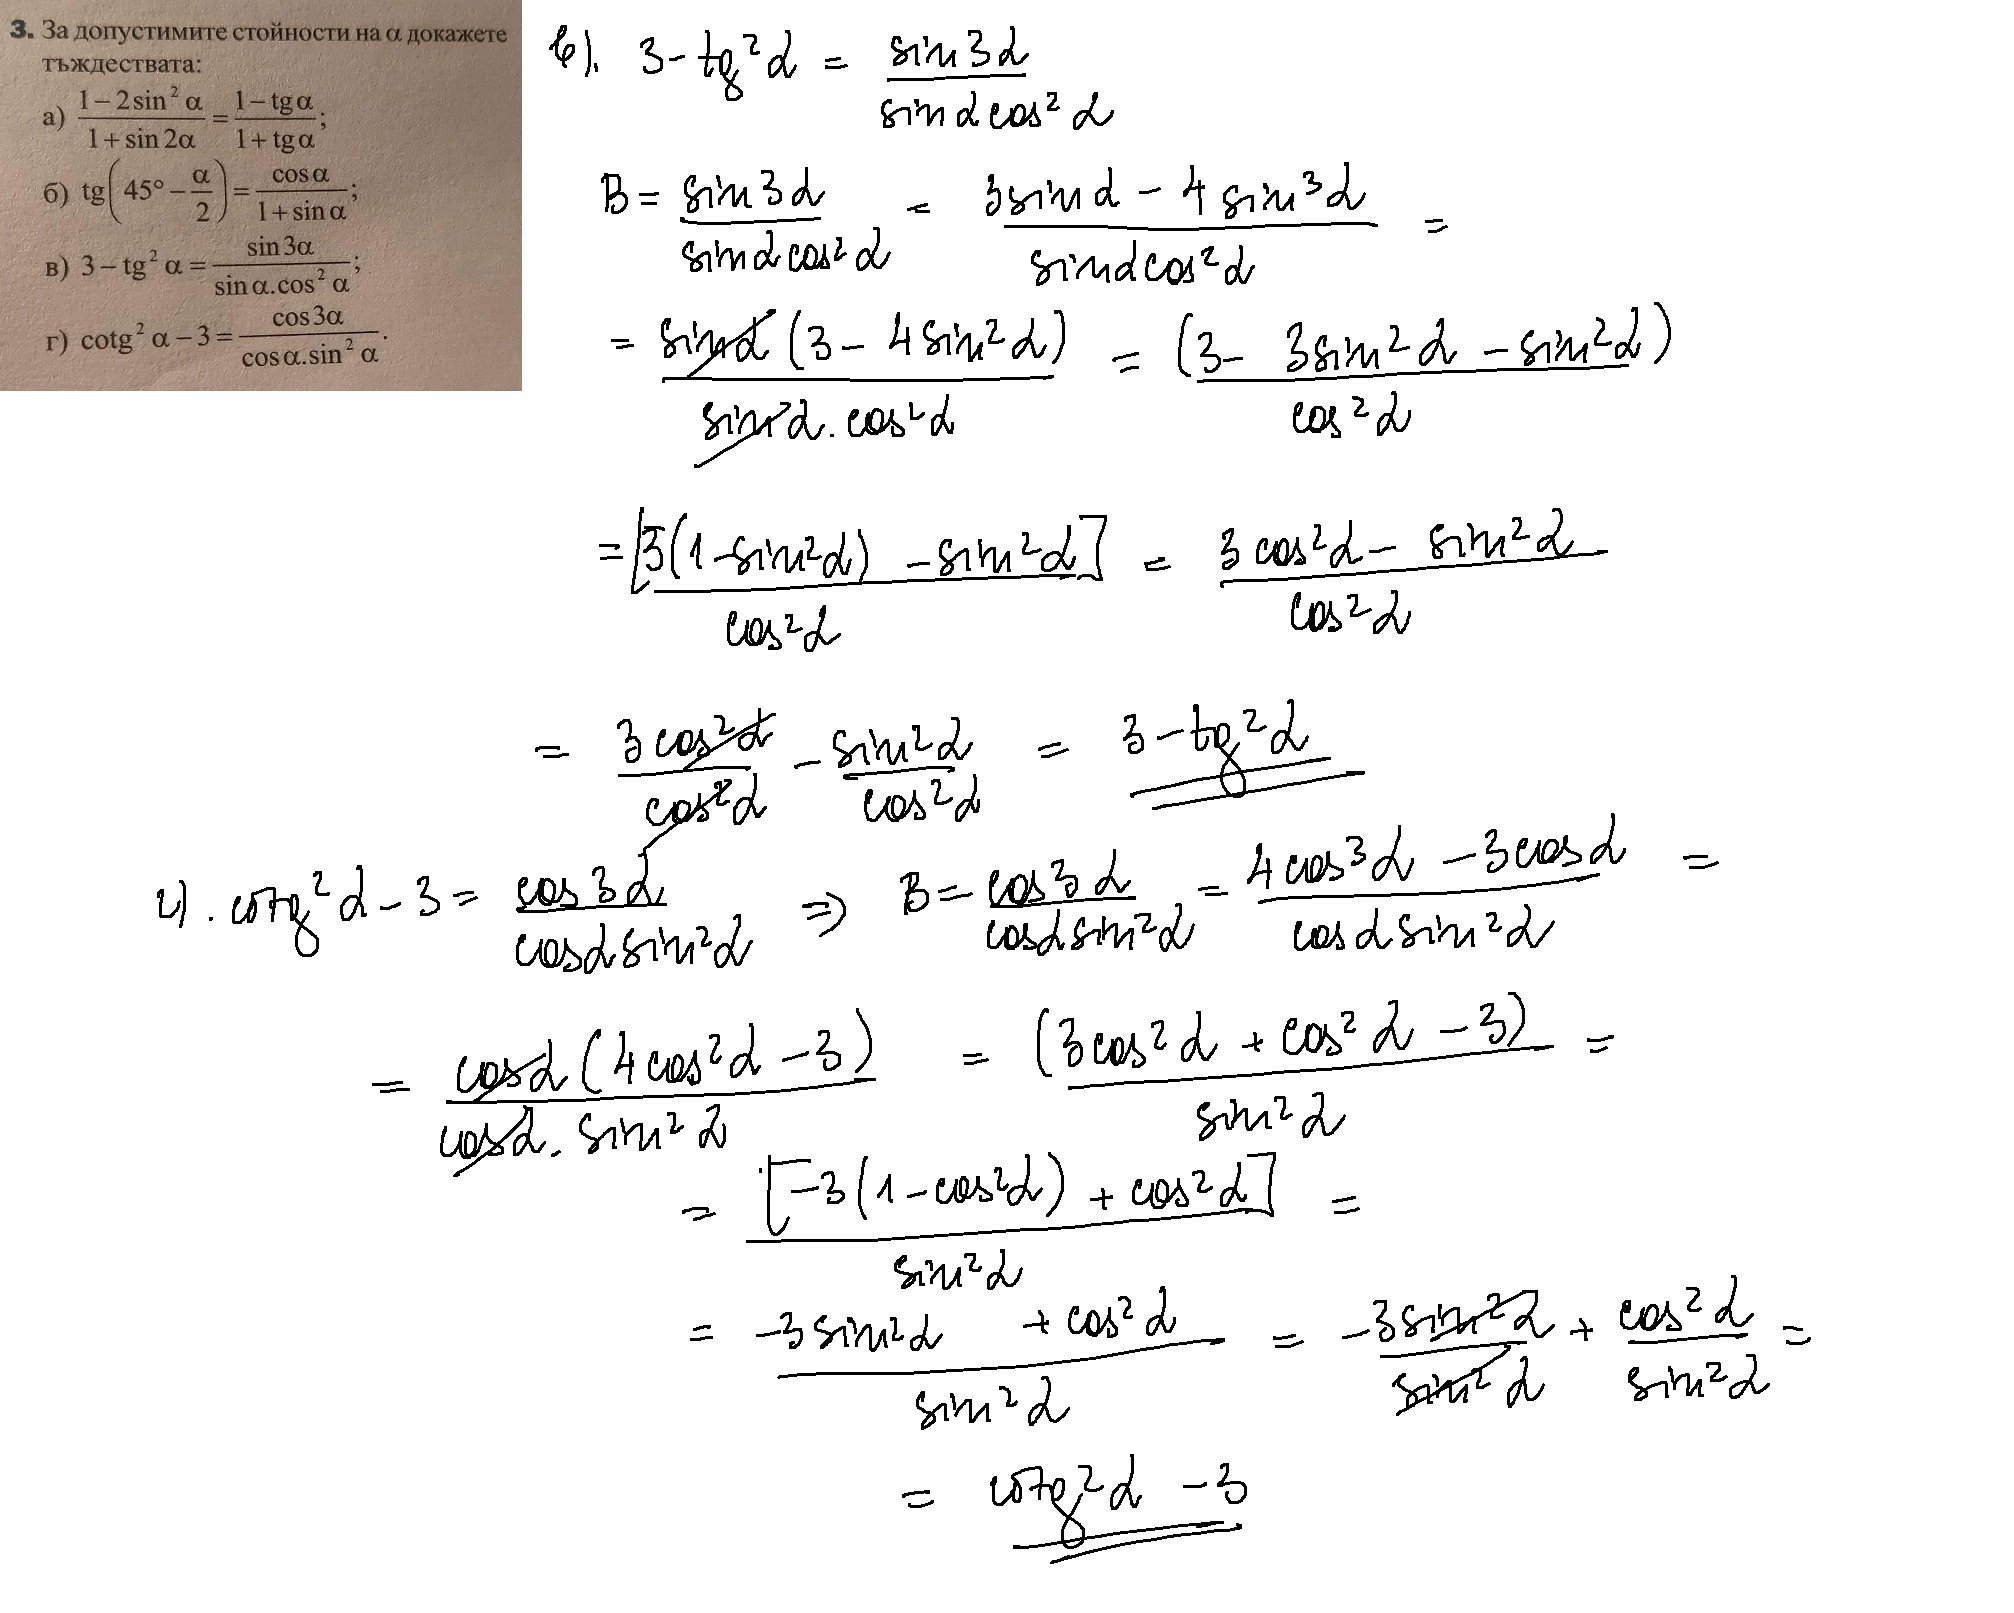 3. За допустимите стойности на α докажете
тъждествата:
а) (1 – 2sin² α)/(1 + sin 2α) = (1 – tg α)/(1 + tg α);
б) tg(45° – α/2) = cos α/(1 + sin α);
в) 3 – tg² α = sin 3α/(sin α.cos² α);
г) cotg² α – 3 = cos 3α/(cos α.sin² α).
в). 3 - tg²α = sin3α/(sinα cos²α)
B = sin3α/(sinα cos²α) = (3sinα - 4sin³α)/(sinα cos²α) =
= sinα(3 - 4sin²α)/(sinα.cos²α) = (3 - 3sin²α - sin²α)/cos²α
= [3(1 - sin²α) - sin²α]/cos²α = (3cos²α - sin²α)/cos²α
= 3cos²α/cos²α - sin²α/cos²α = 3 - tg²α
г). cotg²α - 3 = cos3α/(cosα sin²α) => B = cos3α/(cosα sin²α) = (4cos³α - 3cosα)/(cosα sin²α) =
= cosα(4cos²α - 3)/(cosα.sin²α) = (3cos²α + cos²α - 3)/sin²α =
= [-3(1 - cos²α) + cos²α]/sin²α =
= (-3sin²α + cos²α)/sin²α = -3sin²α/sin²α + cos²α/sin²α =
= cotg²α - 3